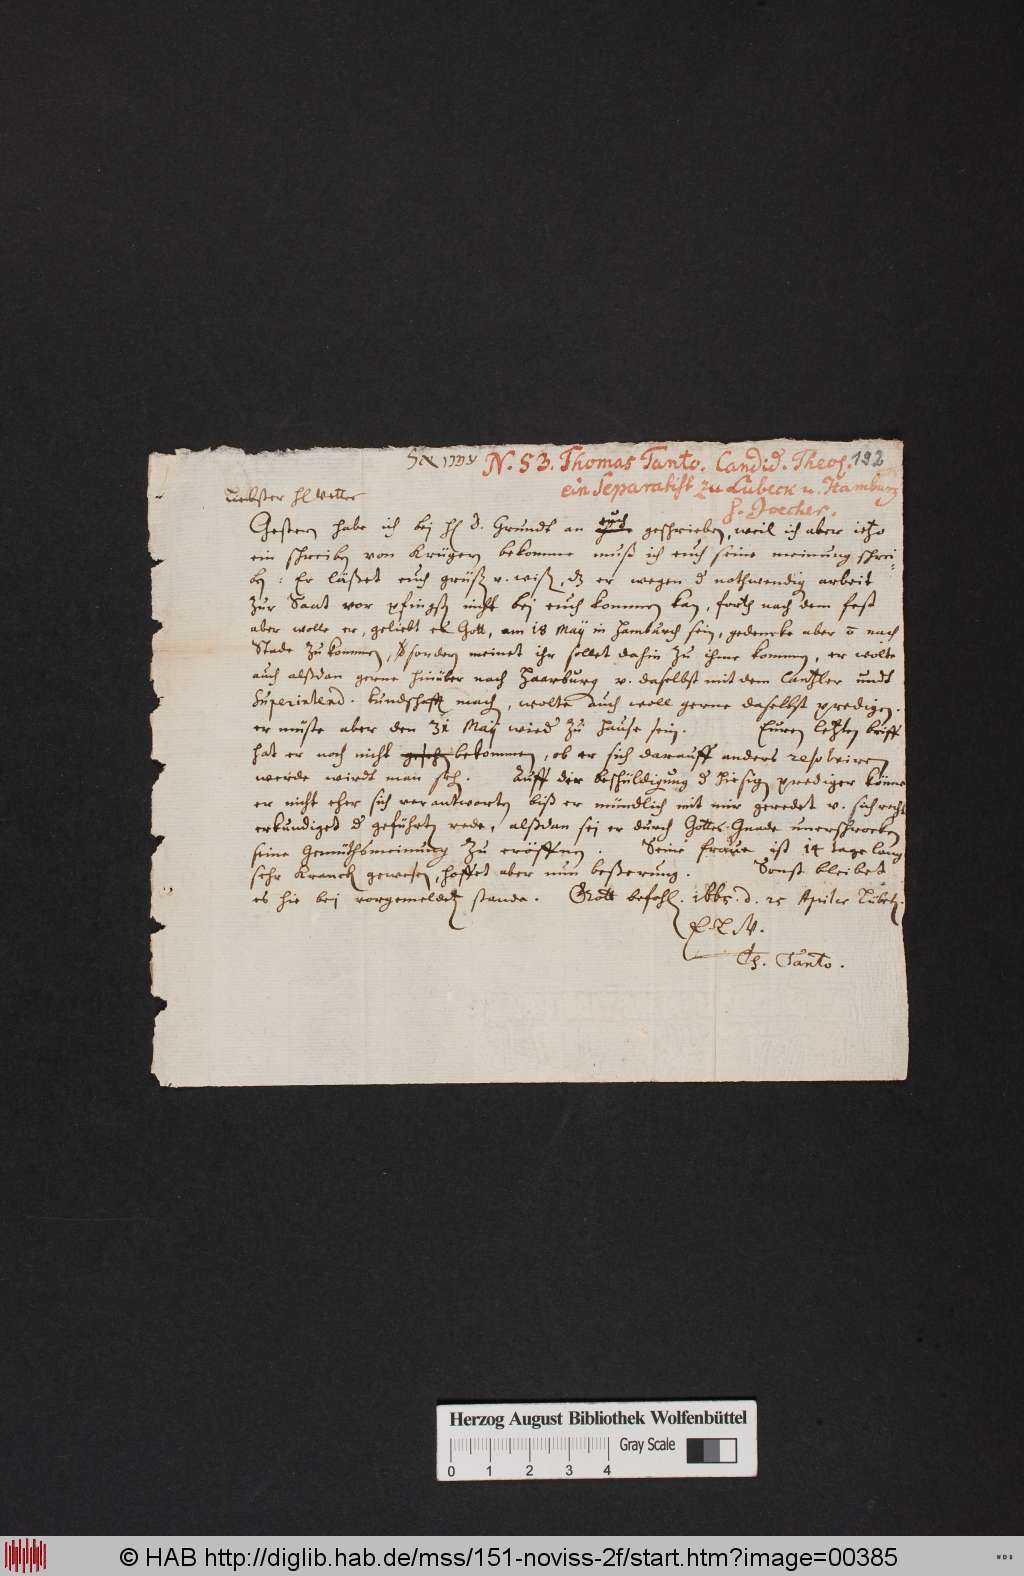 N. 53. Thomas Tanto. Candid. Theol. 192
ein Separatist zu Lübeck u. Hamburg
s. Joecher.
Liebster H Vetter
Gestern habe ich bej H D. Grundt an euch geschrieben, weil ich aber ietzo
ein schreiben von Krügern bekomme muß ich euch seine meinung schrei-
ben: Er läßet euch grüßen v. wißen, dz er wegen d nothwendigen arbeit
zur Saat vor pfingsten nicht bej euch kommen kan, forth nach dem fest
aber wolle er, geliebt es Gott, am 18 Maÿ in Hamburch sein, gedencke aber nach
Stade zu kommen, sondern meinet ihr sollet dahin zu ihme kommen, er wolte
auch alßdan gerne hinüber nach Haarburg v. daselbst mit dem Cantzler undt
Superintend. kundschafft machen, wolte auch woll gerne daselbst predigen.
er müste aber den 31 Maÿ wied zu hause sein. Euren letzten brieff
hat er noch nicht bekommen, ob er sich darauff anders resolviren
werde wirdt man sehen. Auff die beschüldigung d hiesigen prediger könne
er nicht eher sich verantworten biß er mündlich mit mir geredet v. sich recht
erkundiget d geführten rede, alßdan sej er durch Gottes Gnade unerschrocken
seine Gemüthsmeinung zu eröffnen. Seine fraue ist 14 tage lang
sehr Kranck gewesen, hoffet aber nun beßerung. Sonst bleibet
es hie bej vorgemeldeten stande. Gott befohlen. 1665. d. 25 Aprilis Lübeck.
Th. Tanto.
Herzog August Bibliothek Wolfenbüttel
0 1 2 3 4
Gray Scale
© HAB http://diglib.hab.de/mss/151-noviss-2f/start.htm?image=00385